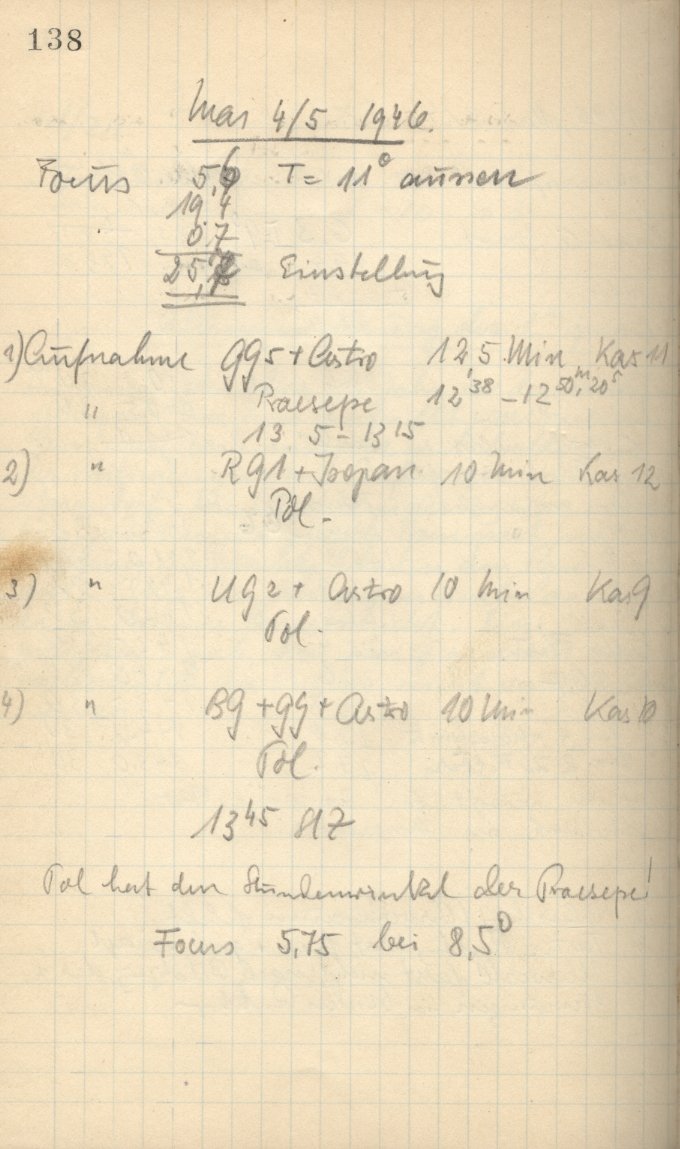 138
Mai 4/5 1946.
Focus 5,6 T = 11° aussen
19,4
0,7
25,7 Einstellung
1) Aufnahme GG5 + Astro 12,5 Min Kas 11
" Praesepe 12 38 – 12 50m, 20s
13 5 – 13 15
2) " RG1 + Isopan 10 Min Kas 12
Pol.
3) " UG2 + Astro 10 Min Kas 9
Pol.
4) " BG + GG + Astro 10 Min Kas 10
Pol.
13 45 StZ
Pol hat den Stundenwinkel der Praesepe!
Focus 5,75 bei 8,5°